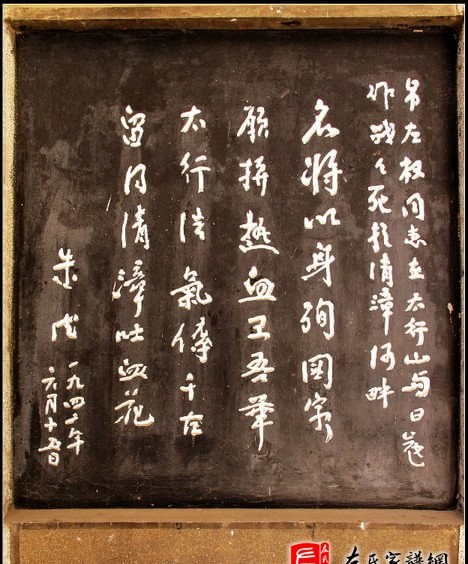 吊左权同志在太行山与日寇
作战々死於清漳河畔
名将以身殉國家
願拼熱血卫吾華
太行浩氣傳千古
留得清漳吐血花
朱德
一九四二年
六月十五日
左氏家譜網